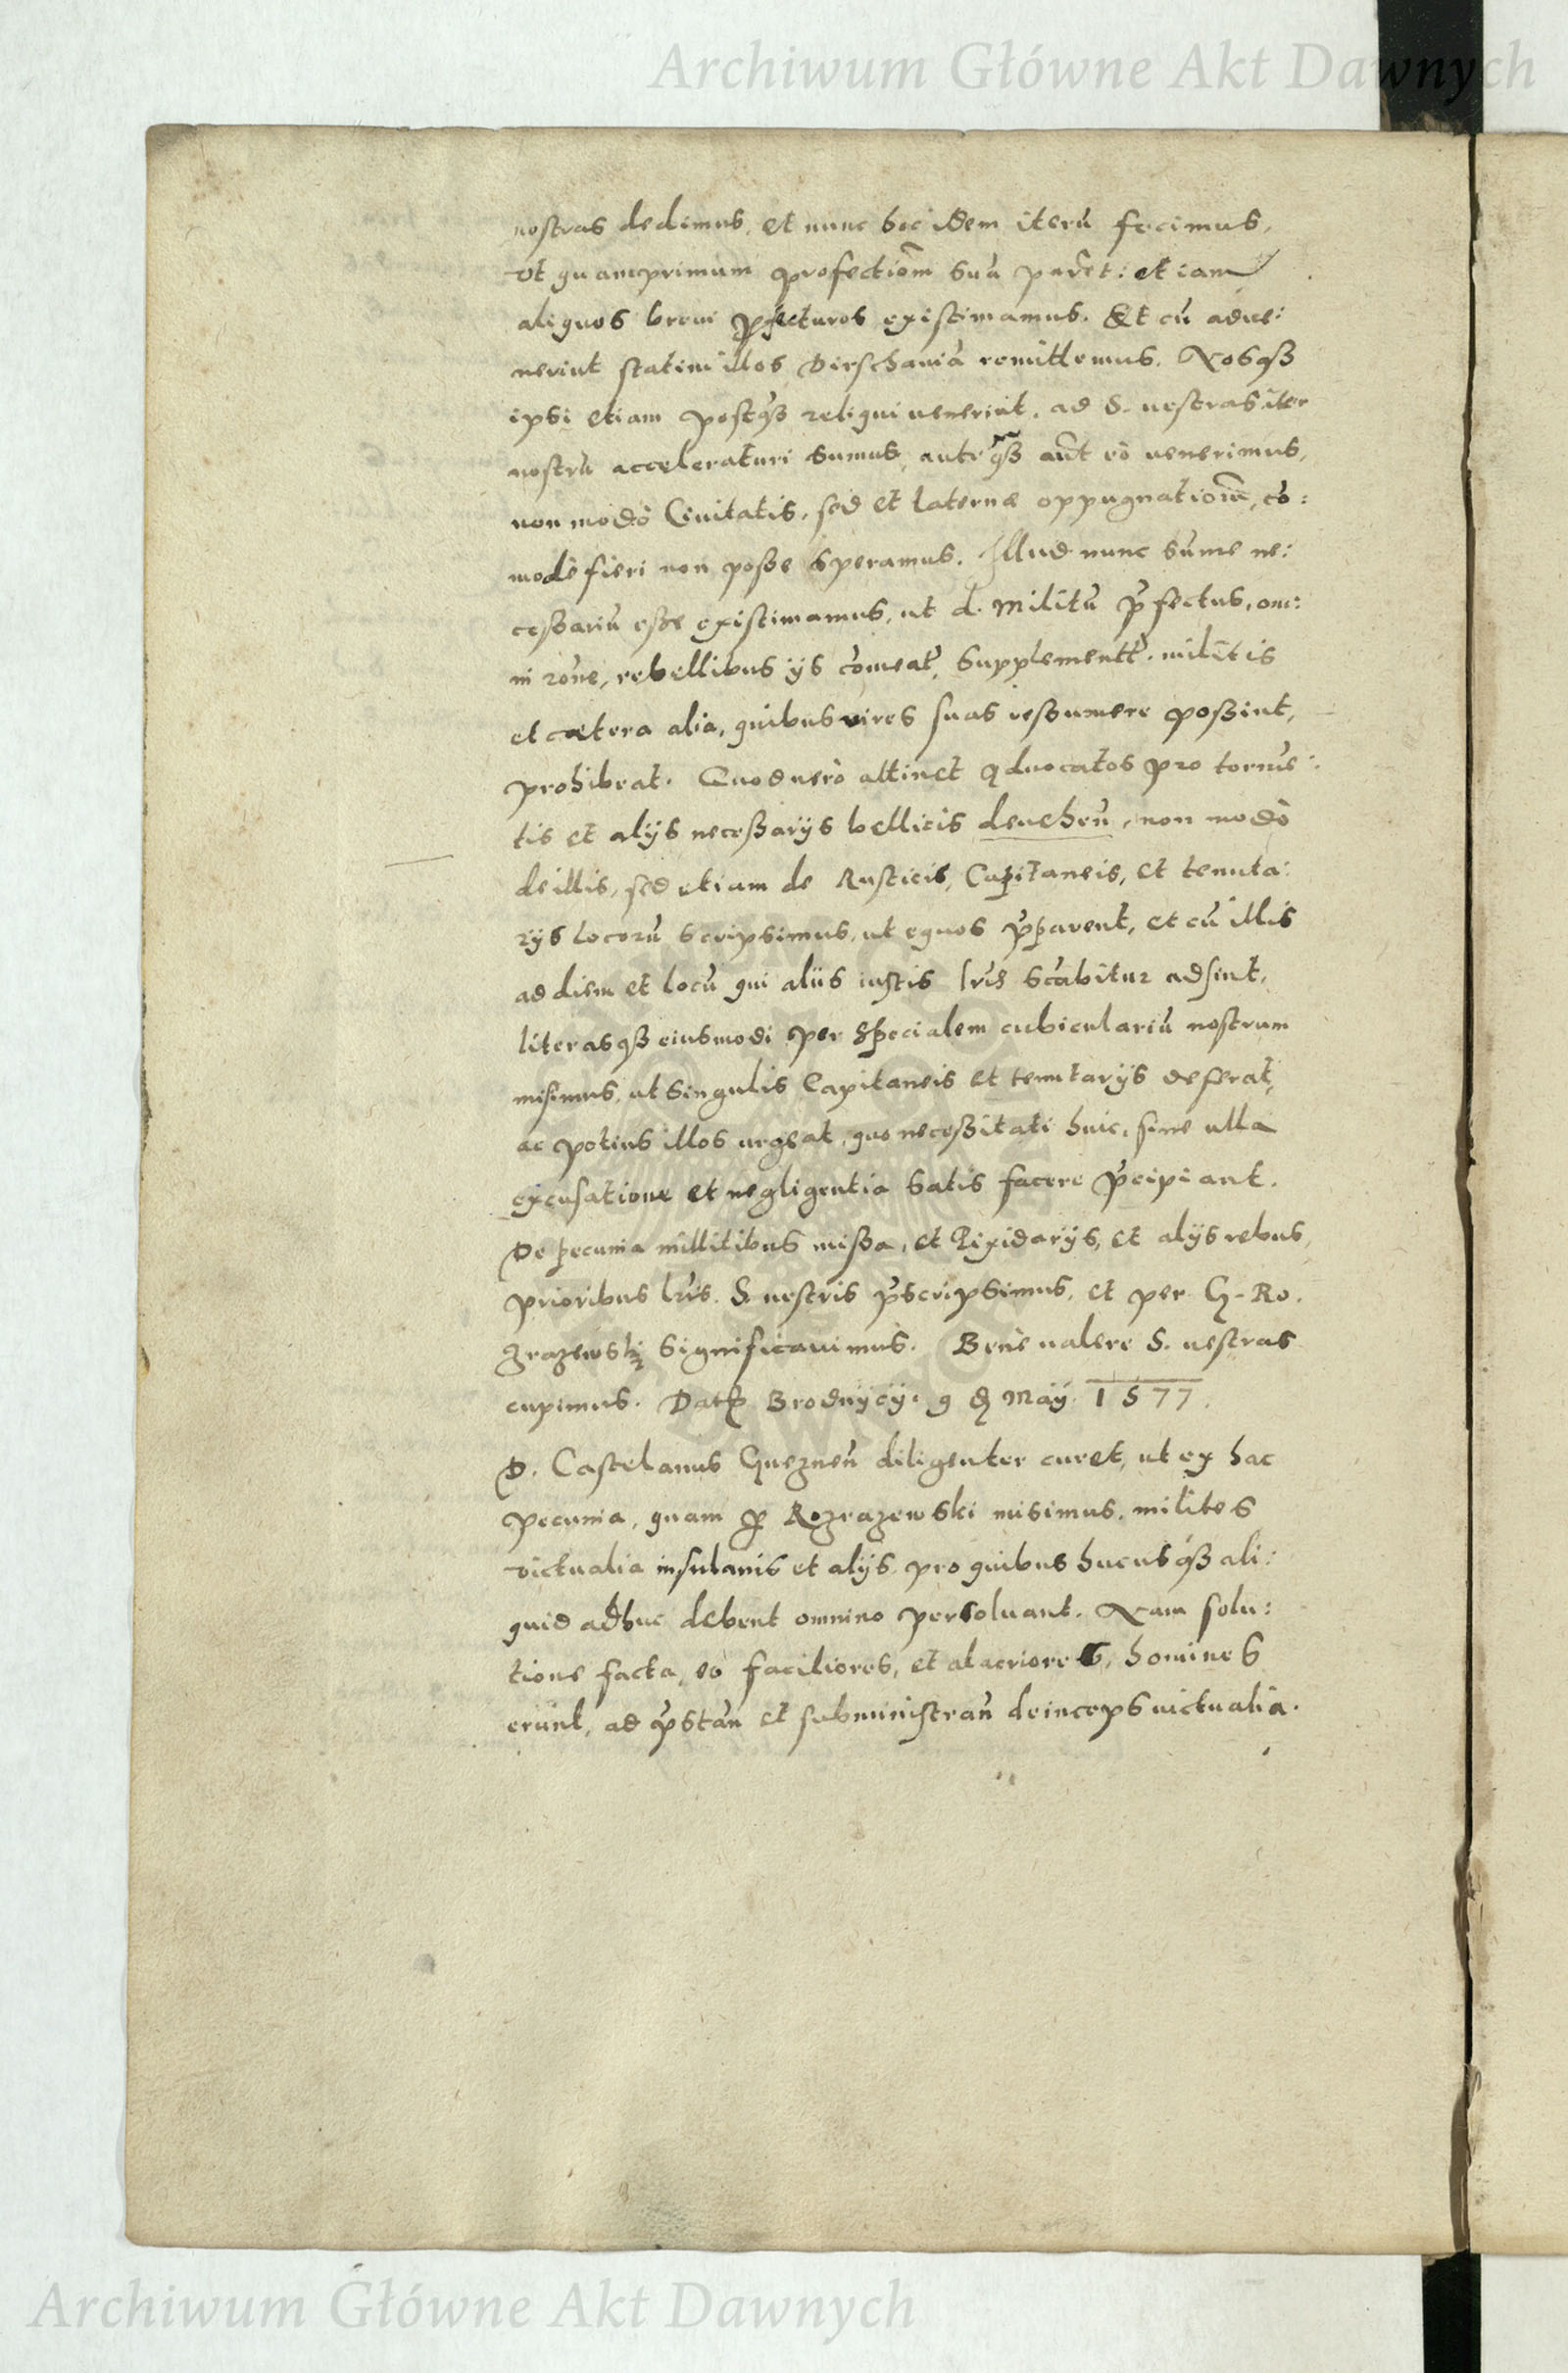 Archiwum Główne Akt Dawnych
nostras dedimus, et nunc hoc idem iterũ fecimus,
vt quamprimum profectiõm suã parẽt: et iam
aliquos breui ꝓfecturos existimamus. Et cũ adue:
nerint statim illos Dirschauiã remittemus. Nosqꝫ
ipsi etiam postqꝫ reliqui uenerint, ad S. uestras iter
nostrũ acceleraturi sumus, anteqꝫ aũt eò uenerimus,
non modò Ciuitatis, sed et laternæ oppugnatioñm, cõ:
modè fieri non posse speramus. Illud nunc sũme ne:
cessariũ esse existimamus, ut d. Militũ p̃fectus, om:
ni rõne, rebellibus ijs cõmeatꝰ, supplementũ militis
et cætera alia, quibus vires suas ressumere possint,
prohibeat. Quod uerò attinet aduocatos pro tormẽ:
tis et alijs necessarijs bellicis deuehen̄, non modò
de illis, sed etiam de Rusticis, Capitaneis, et tenuta:
rijs locorũ scripsimus, ut equos p̃parent, et cũ illis
ad diem et locũ qui aliis iustis lr̃is scr̃abitur adsint,
literasqꝫ eiusmodi per specialem cubiculariũ nostrum
misimus, ut singulis Capitaneis et tenutarijs deferat,
ac potius illos urgeat, quo necessitati huic, sine ulla
excusatione et negligentia satis facere p̃cipiant.
De pecunia millitibus missa, et Rixidarijs, et alijs rebus,
prioribus lr̃is. S. uestris p̃scripsimus, et per G. Ro.
zrazewskj significauimus. Bene ualere S. uestras
cupimus. Datꝭ Brodnycij. 9 d. Maij. 1577.
D. Castelanus Gneznen̄ diligenter curet, ut ex hac
pecunia, quam ꝑ Rozrazewski misimus, milites
victualia insulanis et alijs pro quibus hucusqꝫ ali:
quid adhuc debent omnino persoluant. Nam solu:
tione facta, eo faciliores, et alacriores, homines
erunt, ad p̃stan̄ et subministran̄ deinceps uictualia.
Archiwum Główne Akt Dawnych